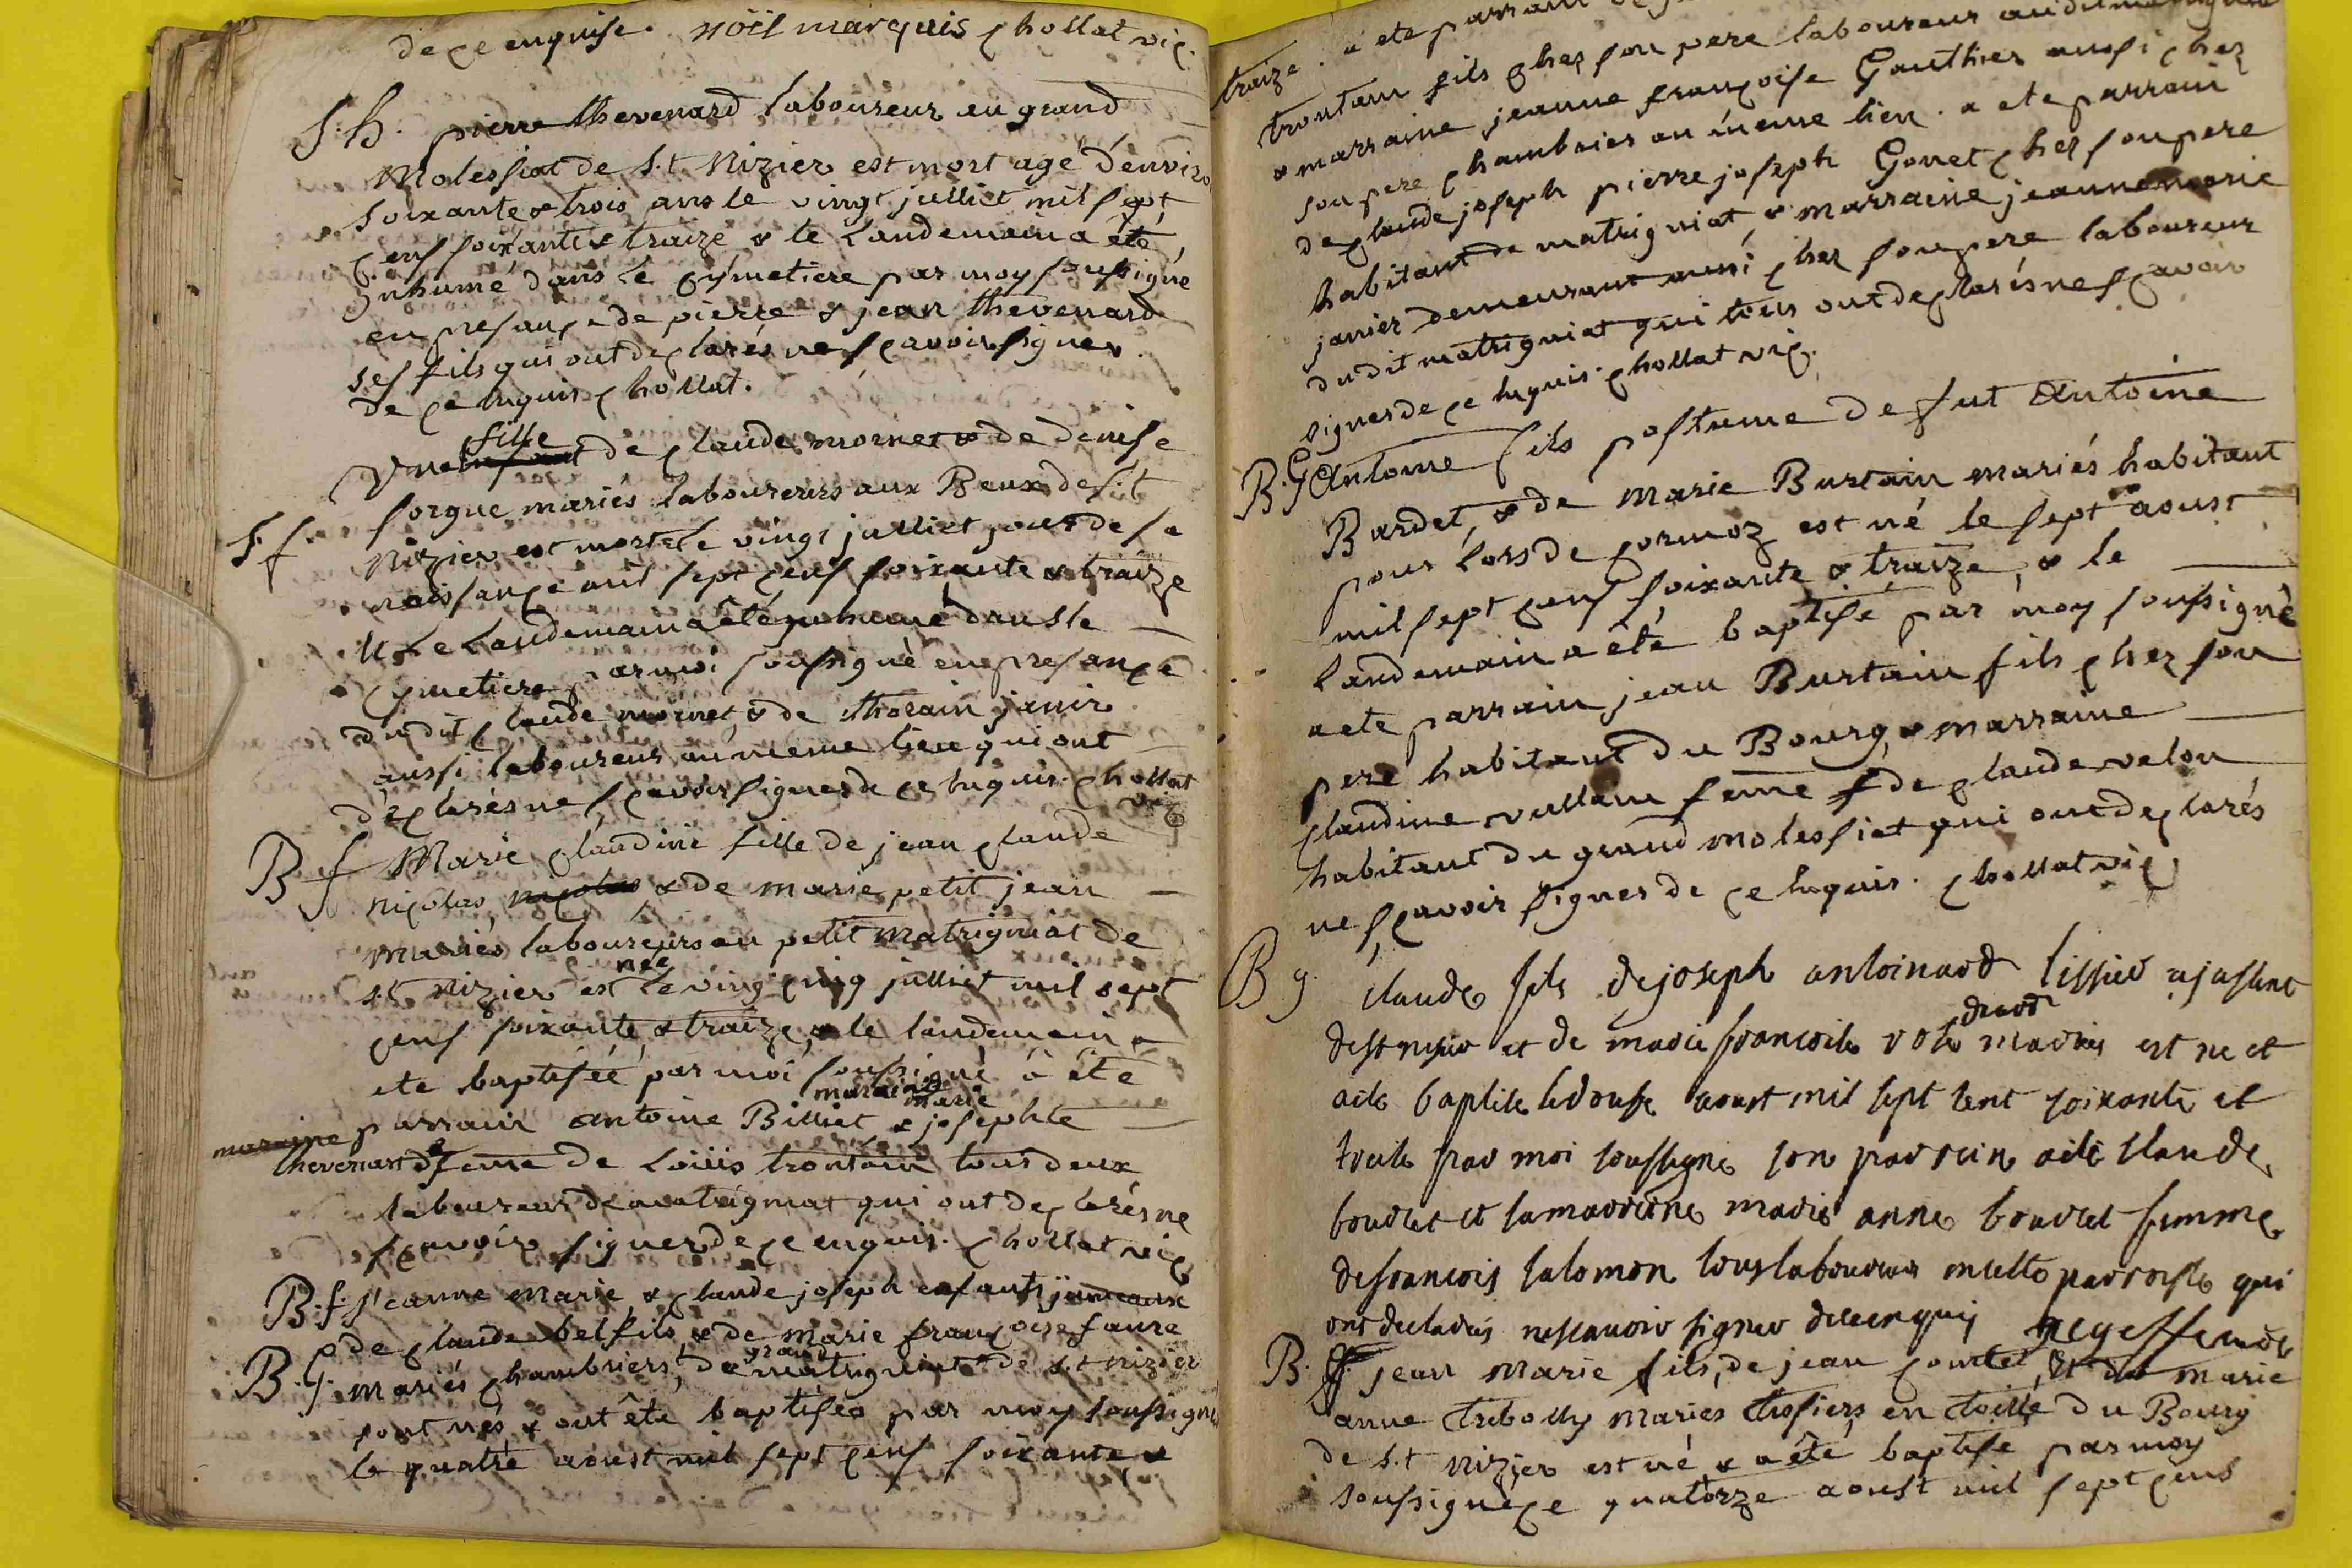 de ce enquise. noël marquis chollat vic.
S.h. pierre thevenard laboureur au grand
Molessiat de S.t Nizier est mort agé d'enviro
soixante & trois ans le vingt julliet mil sept
cens soixante & traize & le landemain a été
inhumé dans le cymetiere par moy soussigné
en presance de pierre & jean thevenard
ses fils qui ont declarés ne scavoir signer
de ce enquis chollat.
fille
Une enfant de claude moinet & de denise
forgue mariés laboureurs aux Beux de S.t
S.f. Nizier est morte le vingt julliet jour de sa
naissance mil sept cens soixante & traize
& le landemain a été inhumé dans le
cymetiere par moi soussigné en presance
du dit claude moinet & de thorain janir
aussi laboureur au meme lieu qui ont
déclarés ne scavoir signer de ce enquis. chollat
vic
B f Marie claudine fille de jean claude
nicolas, nicolas & de marie petit jean
mariés laboureurs au petit matrigniat de
née
s.t Nizier est le vingt cinq julliet mil sept
cens soixante & traize, & le landemain a
ete baptisée par moi soussigné a été
maraine
marie
maraine parrain antoine Billiet & josephte
thevenard feme de Loüis trontain tous deux
laboureur de matrigniat qui ont declarés ne
scavoir signer de ce enquis. chollat vic
B.f. jeanne marie & claude joseph enfants jumeaux
de claude belfils & de marie françoise faure
grand
B.G. mariés chambriers, de matrigniat de s.t nizier
sont nés & ont été baptisés par moy soussigné
le quatre aoust mil sept cens soixante &
traize. a ete parrain
trontain fils chez son pere laboureur audit matrigniat
& marraine jeanne françoise Gauthier aussi chez
son pere chambrier au meme lieu. a ete parrain
de claude joseph pierre joseph Gonet chez son pere
habitant de matrigniat, & marraine jeanne marie
janier demeurant aussi chez son pere laboureur
du dit matrigniat qui tous ont declarés ne scavoir
signer de ce enquis. chollat vic.
B.G Antoine fils postume de fut Antoine
Bardet, & de Marie Burtain mariés habitant
pour lors de cormoz est né le sept aoust
mil sept cens soixante & traize, & le
landemain a été baptisé par moy soussigné
a ete parrain jean Burtain fils chez son
pere habitant du Bourg, & marraine
claudine vullain feme de claude velon
habitant du grand molessiat qui ont declarés
ne scavoir signer de ce enquis. chollat vic
B g. claude fils de joseph antoinard tissier
drard
de st nisier et de marie francoise mariés est ne et
a ete baptise le douse aoust mil sept cent soixante et
treise par moi soussigne son parrein a ete claude
bourlet et sa marreine marie anne bourlet femme
de francois salomon tous laboureurs qui
ont declarés ne scavoir signer de ce enquis
B. jean Marie fils, de jean comte, & de marie
anne tribolly mariés tissiers en toille du Bourg
de S.t Nizier est né & a été baptisé par moy
soussigné ce quatorze aoust mil sept cens